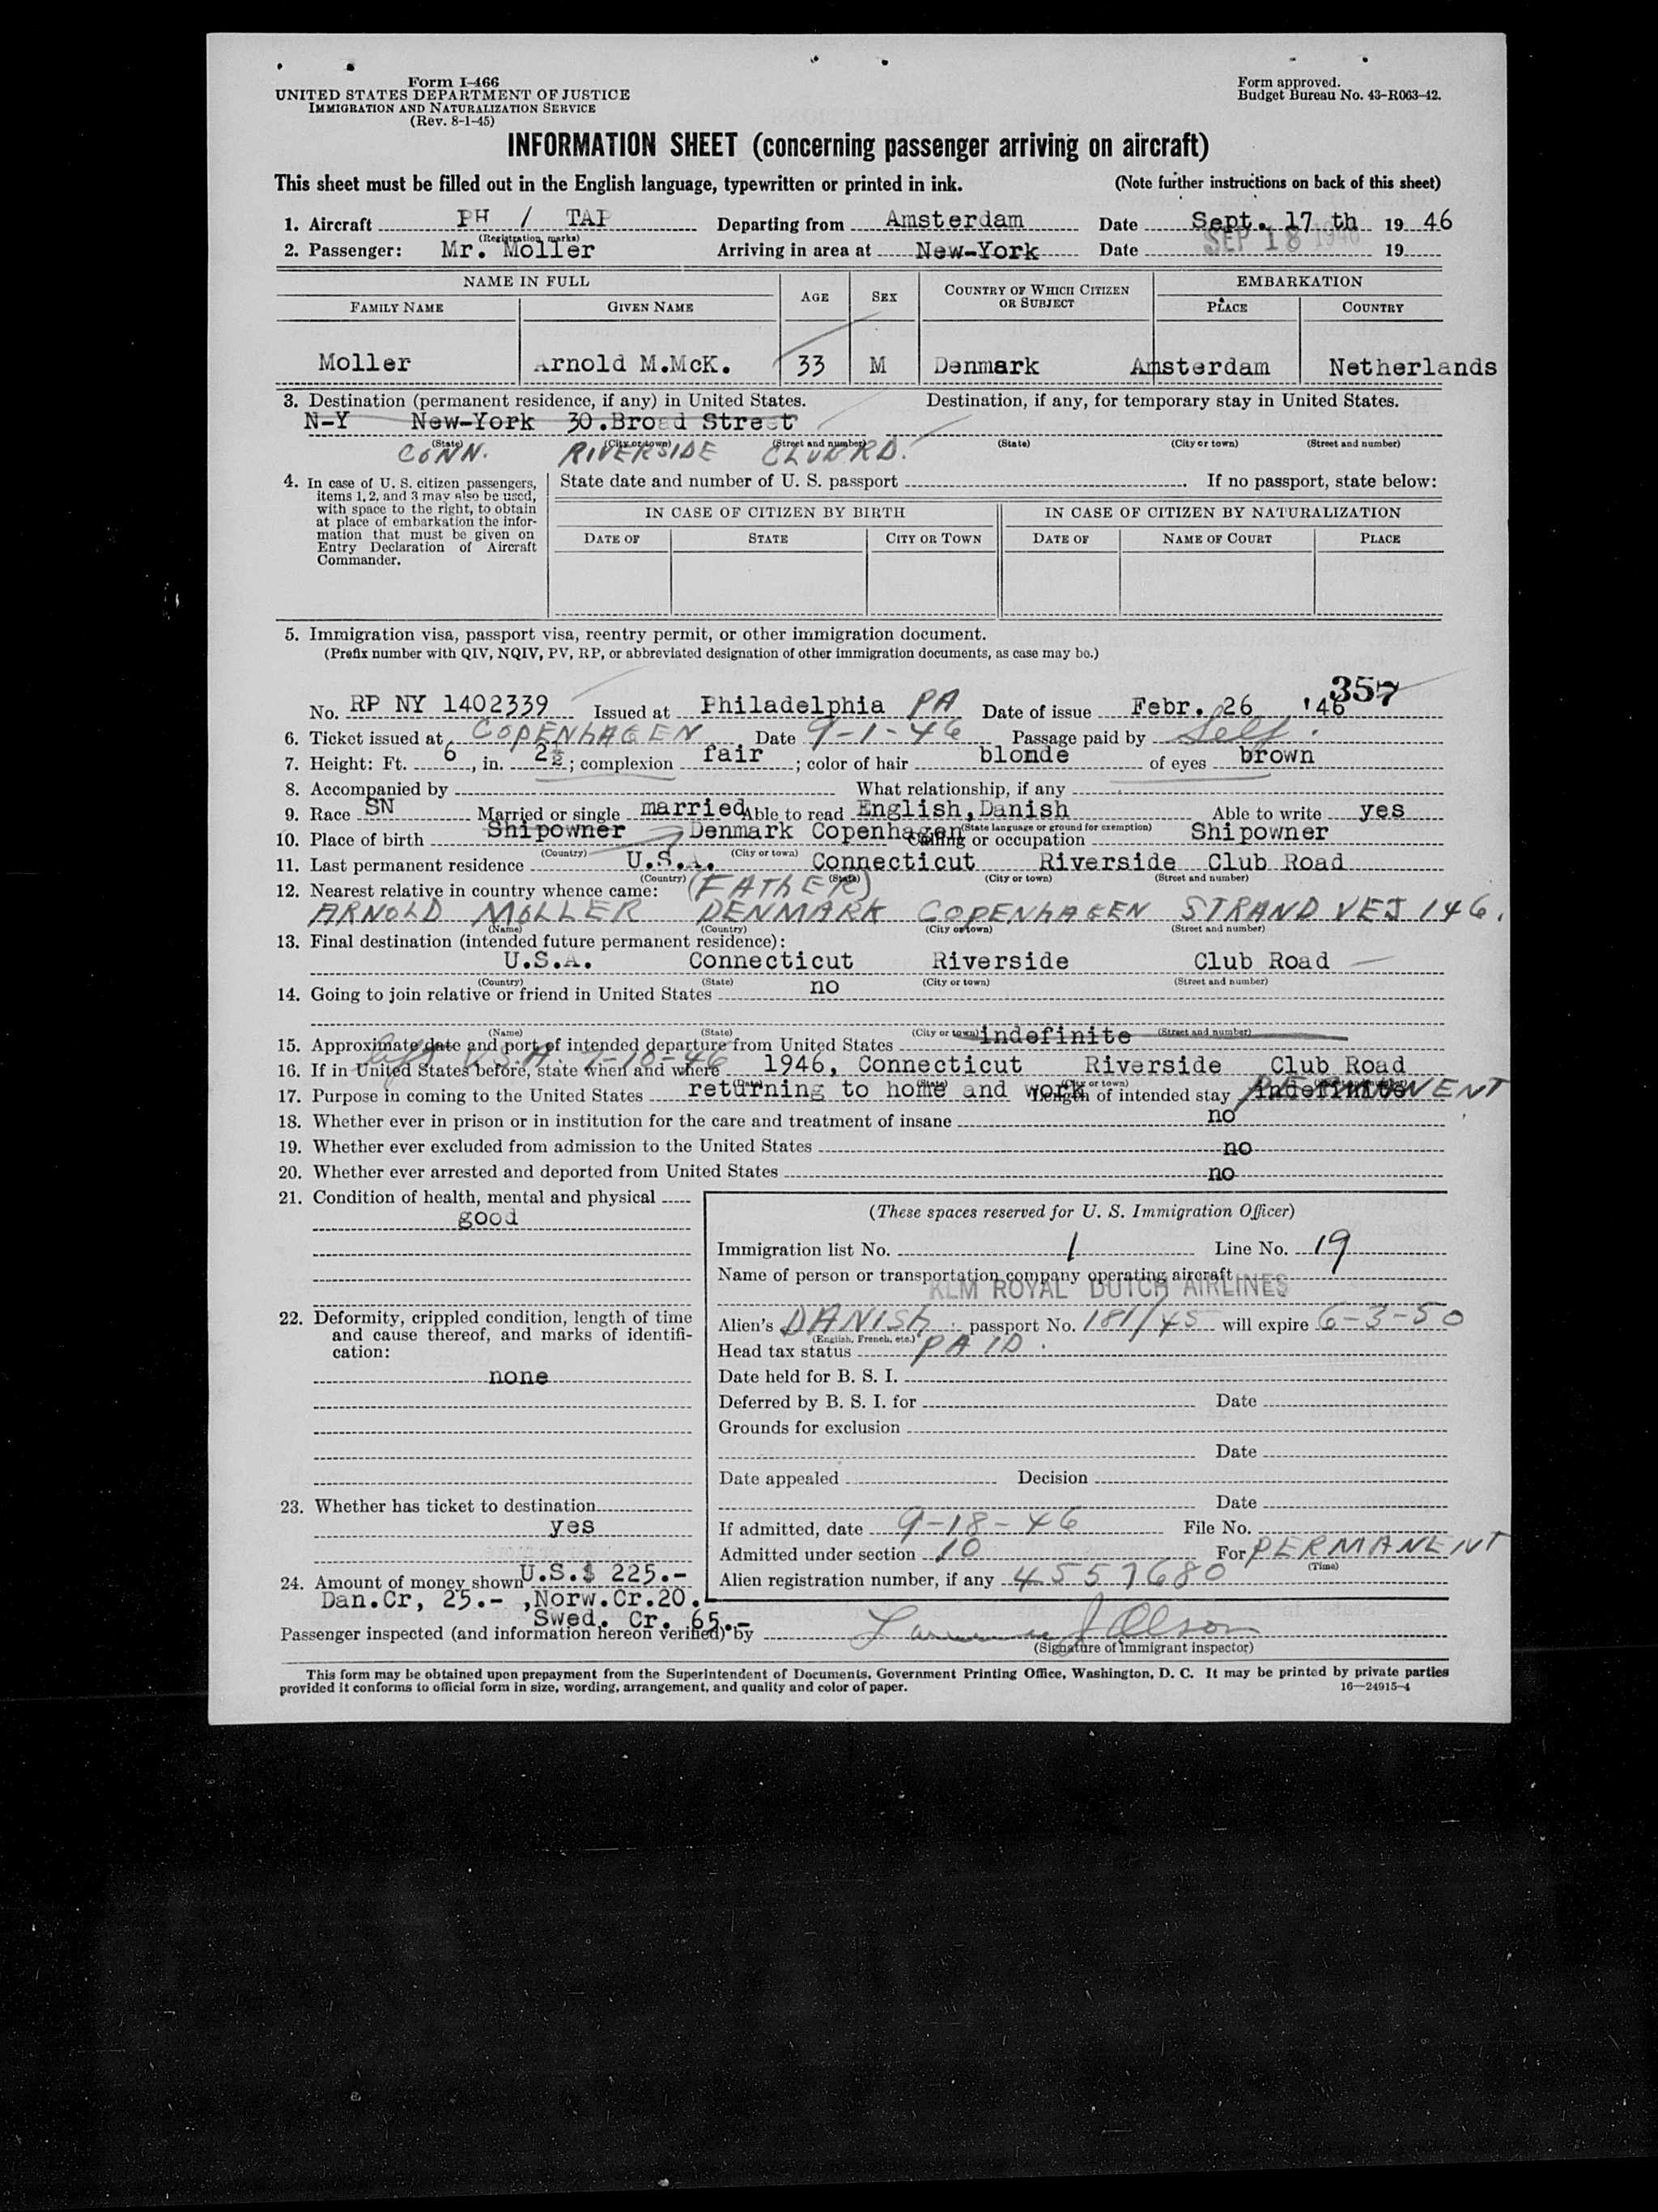 Form I-466
UNITED STATES DEPARTMENT OF JUSTICE
IMMIGRATION AND NATURALIZATION SERVICE
(Rev. 8-1-45)
Form approved.
Budget Bureau No. 43-R063-42.
INFORMATION SHEET (concerning passenger arriving on aircraft)
This sheet must be filled out in the English language, typewritten or printed in ink. (Note further instructions on back of this sheet)
1. Aircraft PH / TAP Departing from Amsterdam Date Sept. 17 th 19 46
(Registration marks) SEP 18 1946
2. Passenger: Mr. Moller Arriving in area at New-York Date 19
NAME IN FULL AGE SEX COUNTRY OF WHICH CITIZEN OR SUBJECT EMBARKATION
FAMILY NAME GIVEN NAME PLACE COUNTRY
Moller Arnold M.McK. 33 M Denmark Amsterdam Netherlands
3. Destination (permanent residence, if any) in United States. Destination, if any, for temporary stay in United States.
N-Y New-York 30.Broad Street
(State) (City or town) (Street and number) (State) (City or town) (Street and number)
CONN. RIVERSIDE CLUB RD.
4. In case of U. S. citizen passengers, items 1, 2, and 3 may also be used, with space to the right, to obtain at place of embarkation the information that must be given on Entry Declaration of Aircraft Commander.
State date and number of U. S. passport If no passport, state below:
IN CASE OF CITIZEN BY BIRTH IN CASE OF CITIZEN BY NATURALIZATION
DATE OF STATE CITY OR TOWN DATE OF NAME OF COURT PLACE
5. Immigration visa, passport visa, reentry permit, or other immigration document.
(Prefix number with QIV, NQIV, PV, RP, or abbreviated designation of other immigration documents, as case may be.)
357
No. RP NY 1402339 Issued at Philadelphia PA Date of issue Febr. 26 '46
6. Ticket issued at COPENHAGEN Date 9-1-46 Passage paid by Self.
7. Height: Ft. 6, in. 2½; complexion fair; color of hair blonde of eyes brown
8. Accompanied by What relationship, if any
9. Race SN Married or single married Able to read English,Danish Able to write yes
(State language or ground for exemption)
10. Place of birth Shipowner Denmark Copenhagen Calling or occupation Shipowner
(Country) (City or town)
11. Last permanent residence U.S.A. Connecticut Riverside Club Road
(Country) (State) (City or town) (Street and number)
12. Nearest relative in country whence came: (FATHER)
ARNOLD MOLLER DENMARK COPENHAGEN STRAND VEJ 146.
(Name) (Country) (City or town) (Street and number)
13. Final destination (intended future permanent residence):
U.S.A. Connecticut Riverside Club Road
(Country) (State) (City or town) (Street and number)
14. Going to join relative or friend in United States no
(Name) (State) (City or town) (Street and number)
15. Approximate date and port of intended departure from United States indefinite
left U.S.A. 7-18-46
16. If in United States before, state when and where 1946, Connecticut Riverside Club Road
(Date) (State) (City or town) (Street and number)
17. Purpose in coming to the United States returning to home and work Length of intended stay indefinite PERMANENT
18. Whether ever in prison or in institution for the care and treatment of insane no
19. Whether ever excluded from admission to the United States no
20. Whether ever arrested and deported from United States no
21. Condition of health, mental and physical
good
22. Deformity, crippled condition, length of time and cause thereof, and marks of identification:
none
23. Whether has ticket to destination
yes
24. Amount of money shown U.S.$ 225.-
Dan.Cr, 25.- ,Norw.Cr.20.-
Swed. Cr. 65.-
(These spaces reserved for U. S. Immigration Officer)
Immigration list No. 1 Line No. 19
Name of person or transportation company operating aircraft
KLM ROYAL DUTCH AIRLINES
Alien's DANISH passport No. 181/45 will expire 6-3-50
(English, French, etc.)
Head tax status PAID.
Date held for B. S. I.
Deferred by B. S. I. for Date
Grounds for exclusion
Date
Date appealed Decision
Date
If admitted, date 9-18-46 File No.
Admitted under section 10 For PERMANENT
(Time)
Alien registration number, if any 4557680
Passenger inspected (and information hereon verified) by Olson
(Signature of immigrant inspector)
This form may be obtained upon prepayment from the Superintendent of Documents, Government Printing Office, Washington, D. C. It may be printed by private parties
provided it conforms to official form in size, wording, arrangement, and quality and color of paper. 16—24915-4